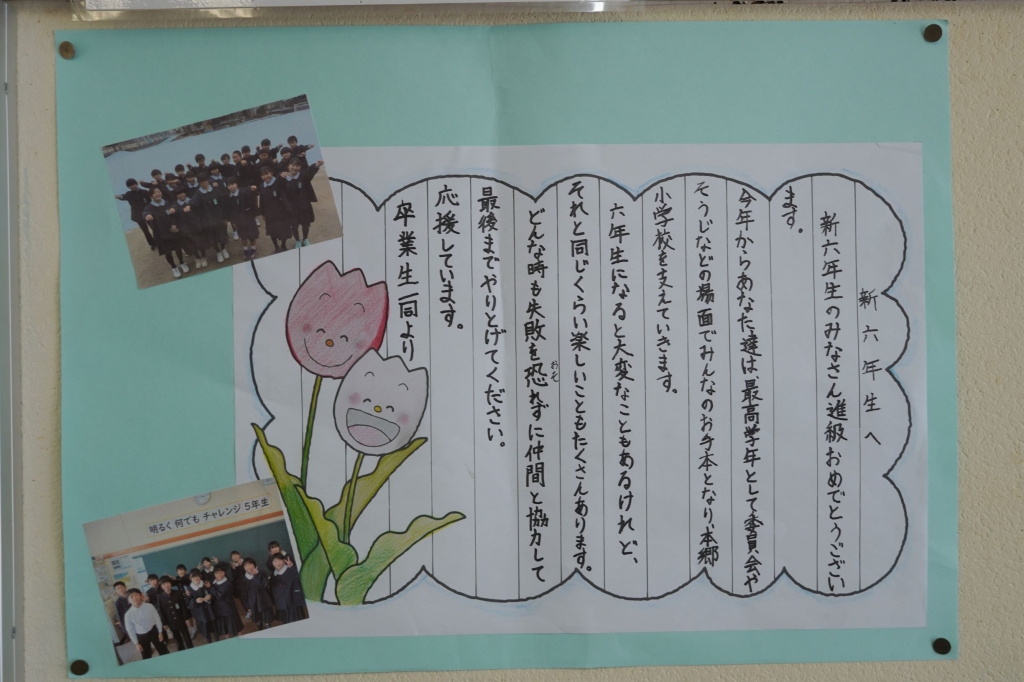 新六年生へ
新六年生のみなさん進級おめでとうござい
ます。
今年からあなた達は、最高学年として委員会や
そうじなどの場面でみんなのお手本となり、本郷
小学校を支えていきます。
六年生になると大変なこともあるけれど、
それと同じくらい楽しいこともたくさんあります。
どんな時も失敗を恐れずに仲間と協力して
おそ
最後までやりとげてください。
応援しています。
卒業生一同より
明るく 何でも チャレンジ 5年生